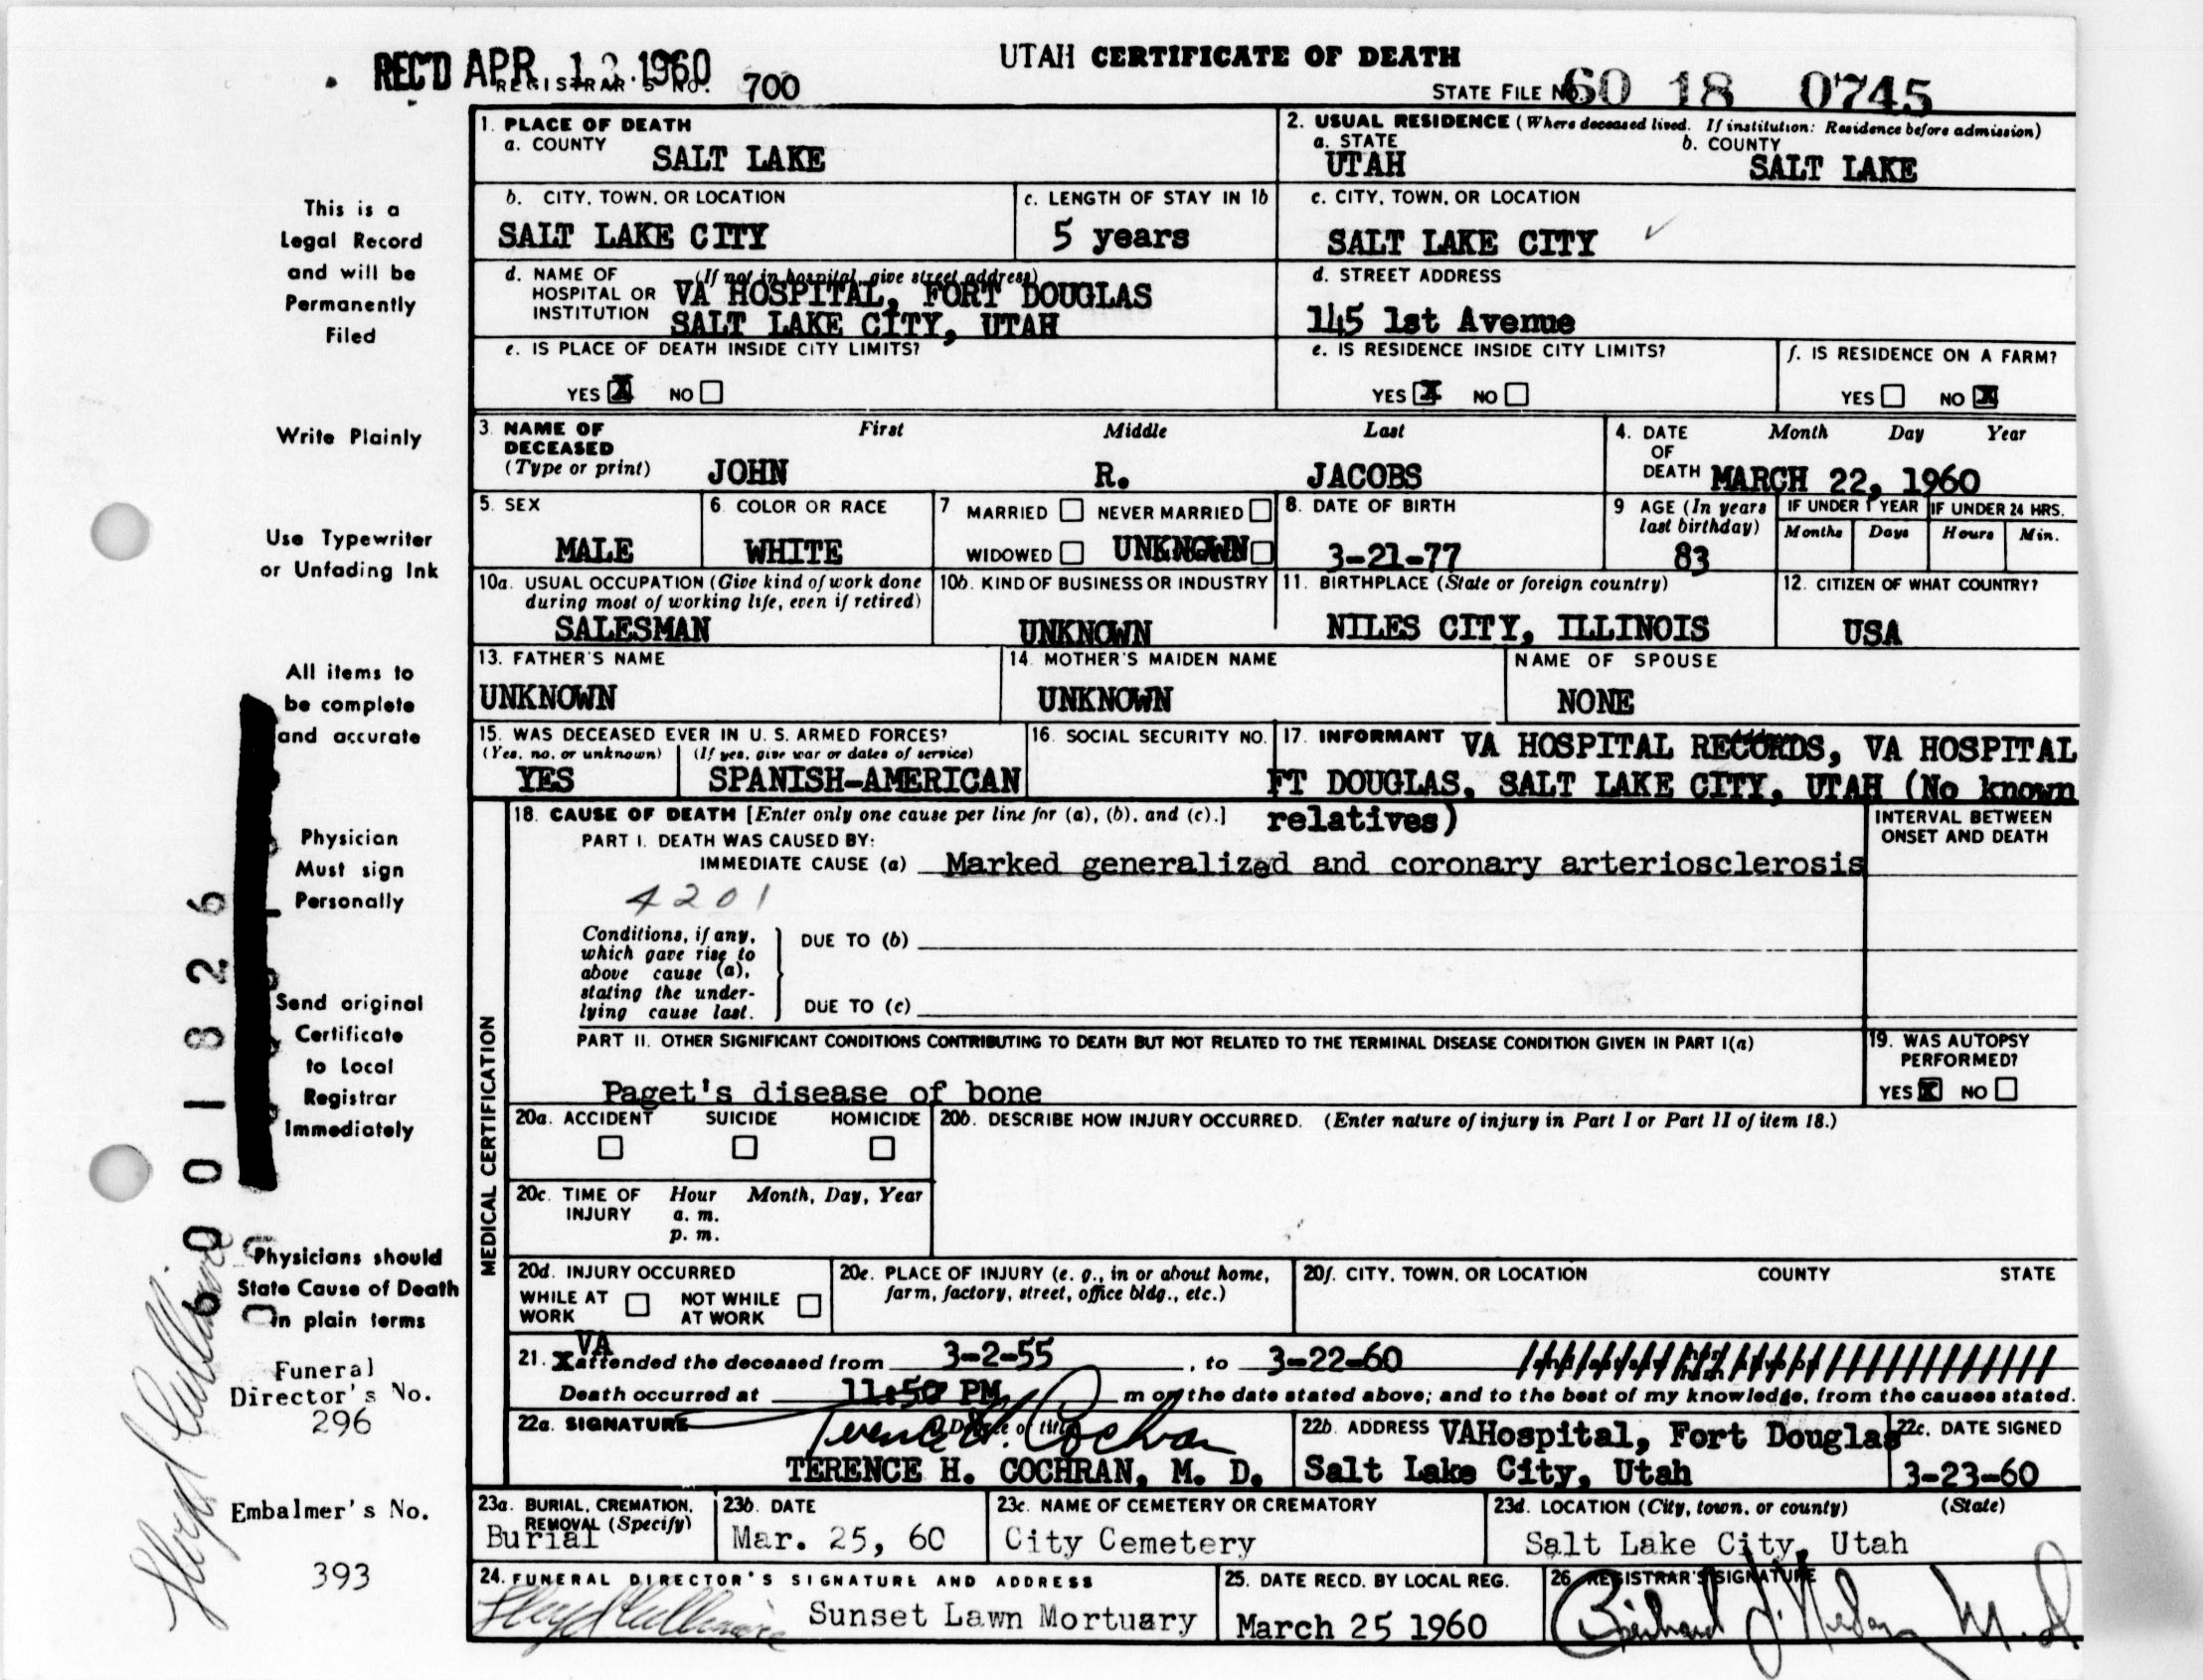 UTAH CERTIFICATE OF DEATH
REC'D APR 12 1960
REGISTRAR'S NO. 700
STATE FILE NO. 60 18 0745
This is a
Legal Record
and will be
Permanently
Filed
Write Plainly
Use Typewriter
or Unfading Ink
All items to
be complete
and accurate
Physician
Must sign
Personally
Send original
Certificate
to Local
Registrar
Immediately
Physicians should
State Cause of Death
in plain terms
Funeral
Director's No.
296
Embalmer's No.
393
1. PLACE OF DEATH
a. COUNTY SALT LAKE
2. USUAL RESIDENCE (Where deceased lived. If institution: Residence before admission)
a. STATE UTAH b. COUNTY SALT LAKE
b. CITY, TOWN, OR LOCATION SALT LAKE CITY
c. LENGTH OF STAY IN 1b 5 years
c. CITY, TOWN, OR LOCATION SALT LAKE CITY ✓
d. NAME OF HOSPITAL OR INSTITUTION (If not in hospital, give street address)
VA HOSPITAL, FORT DOUGLAS
SALT LAKE CITY, UTAH
d. STREET ADDRESS
145 1st Avenue
e. IS PLACE OF DEATH INSIDE CITY LIMITS?
YES X NO
e. IS RESIDENCE INSIDE CITY LIMITS?
YES X NO
f. IS RESIDENCE ON A FARM?
YES NO X
3. NAME OF DECEASED (Type or print) First Middle Last
JOHN R. JACOBS
4. DATE OF DEATH Month Day Year
MARCH 22, 1960
5. SEX
MALE
6. COLOR OR RACE
WHITE
7 MARRIED NEVER MARRIED
WIDOWED UNKNOWN
8. DATE OF BIRTH
3-21-77
9 AGE (In years last birthday)
83
IF UNDER 1 YEAR Months Days
IF UNDER 24 HRS. Hours Min.
10a. USUAL OCCUPATION (Give kind of work done during most of working life, even if retired)
SALESMAN
10b. KIND OF BUSINESS OR INDUSTRY
UNKNOWN
11. BIRTHPLACE (State or foreign country)
NILES CITY, ILLINOIS
12. CITIZEN OF WHAT COUNTRY?
USA
13. FATHER'S NAME
UNKNOWN
14. MOTHER'S MAIDEN NAME
UNKNOWN
NAME OF SPOUSE
NONE
15. WAS DECEASED EVER IN U. S. ARMED FORCES?
(Yes, no, or unknown) (If yes, give war or dates of service)
YES SPANISH-AMERICAN
16. SOCIAL SECURITY NO.
17. INFORMANT VA HOSPITAL RECORDS, VA HOSPITAL
FT DOUGLAS, SALT LAKE CITY, UTAH (No known
relatives)
MEDICAL CERTIFICATION
18. CAUSE OF DEATH [Enter only one cause per line for (a), (b), and (c).]
INTERVAL BETWEEN ONSET AND DEATH
PART I. DEATH WAS CAUSED BY:
IMMEDIATE CAUSE (a) Marked generalized and coronary arteriosclerosis
4201
Conditions, if any, which gave rise to above cause (a), stating the underlying cause last.
DUE TO (b)
DUE TO (c)
PART II. OTHER SIGNIFICANT CONDITIONS CONTRIBUTING TO DEATH BUT NOT RELATED TO THE TERMINAL DISEASE CONDITION GIVEN IN PART I(a)
Paget's disease of bone
19. WAS AUTOPSY PERFORMED?
YES X NO
20a. ACCIDENT SUICIDE HOMICIDE
20b. DESCRIBE HOW INJURY OCCURRED. (Enter nature of injury in Part I or Part II of item 18.)
20c. TIME OF INJURY Hour Month, Day, Year
a. m.
p. m.
20d. INJURY OCCURRED
WHILE AT WORK NOT WHILE AT WORK
20e. PLACE OF INJURY (e. g., in or about home, farm, factory, street, office bldg., etc.)
20f. CITY, TOWN, OR LOCATION COUNTY STATE
VA
21. X attended the deceased from 3-2-55, to 3-22-60
Death occurred at 11:50 PM m on the date stated above; and to the best of my knowledge, from the causes stated.
22a. SIGNATURE (Degree or title)
Terence H. Cochran
TERENCE H. COCHRAN, M. D.
22b. ADDRESS VAHospital, Fort Douglas
Salt Lake City, Utah
22c. DATE SIGNED
3-23-60
23a. BURIAL, CREMATION, REMOVAL (Specify)
Burial
23b. DATE
Mar. 25, 60
23c. NAME OF CEMETERY OR CREMATORY
City Cemetery
23d. LOCATION (City, town, or county) (State)
Salt Lake City, Utah
24. FUNERAL DIRECTOR'S SIGNATURE AND ADDRESS
Sunset Lawn Mortuary
25. DATE RECD. BY LOCAL REG.
March 25 1960
26. REGISTRAR'S SIGNATURE